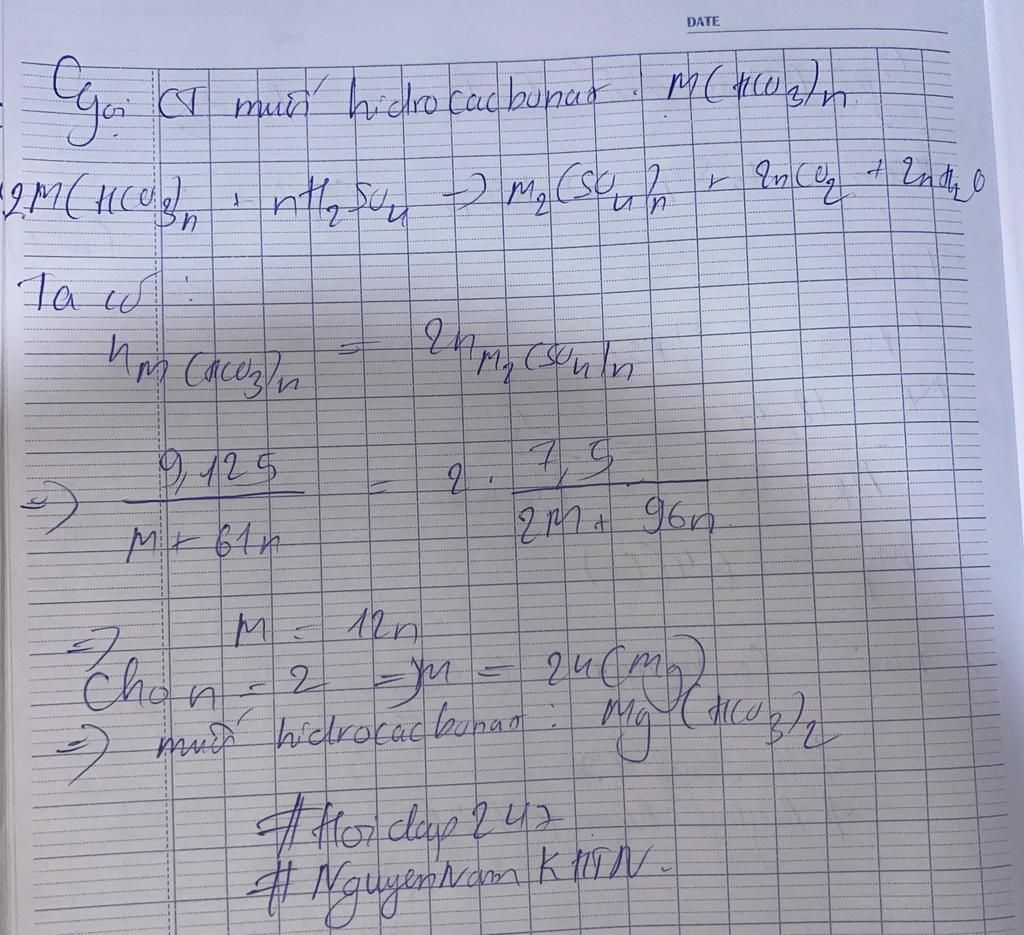 DATE
Gọi CT muối hidrocacbonat : M(HCO3)n
2M(HCO3)n + nH2SO4 → M2(SO4)n + 2nCO2 + 2nH2O
Ta có :
nM(HCO3)n = 2nM2(SO4)n
⇒ 9,125 / M + 61n = 2 . 7,5 / 2M + 96n
⇒ M = 12n
Cho n = 2 ⇒ M = 24 (Mg)
⇒ muối hidrocacbonat : Mg(HCO3)2
# Hoidap247
# NguyenNam KHTN.